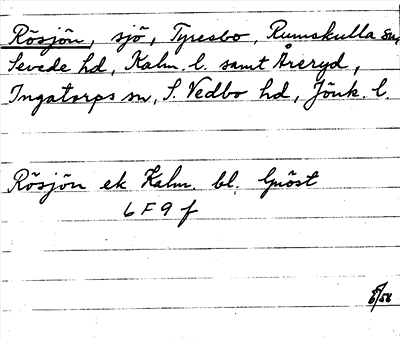 Rösjön, sjö, Tyresbo, Rumskulla sn,
Sevede hd, Kalm. l. samt Åreryd,
Ingatorps sn, S. Vedbo hd, Jönk. l.
Rösjön ek Kalm. bl.
6 F 9 f